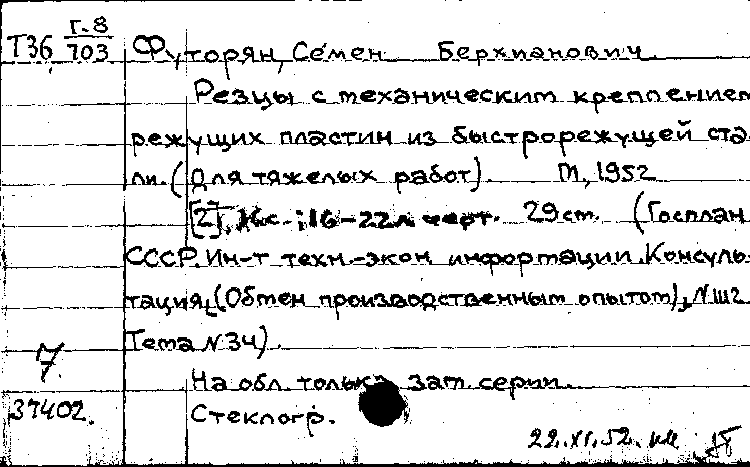 Т36 Г.8
703
Футорян, Семен Берхманович.
Резцы с механическим креплением
режущих пластин из быстрорежущей ста
ли. (Для тяжелых работ). М., 1952
[2], с.; 16-22 л черт. 29 см. (Госплан
СССР. Ин-т техн.-экон информации. Консуль
тация, (Обмен производственным опытом), N Ш2
Тема N 34).
7.
На обл. только заг. серии.
37402.
Стеклогр.
22.XI.52.